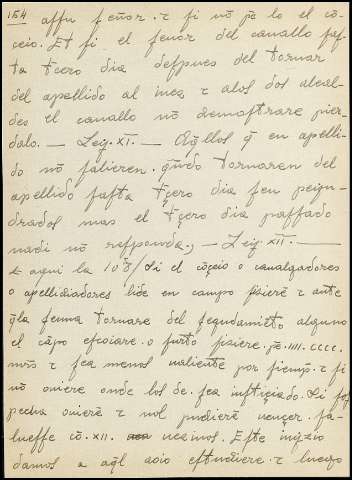 154 affu ſeñor. τ ſi nõ pã lo el cõ-
ceio. Et ſi el ſenor del cauallo faſ-
ta tcero dia deſpues del tornar
del apellido al iuez τ alos dos alcal-
des el cauallo nõ demoſtrare pier-
dalo. — Ley. XI. — Aq̃llos q̃ en apelli-
do nõ ſalieren. q̃ndo tornaren del
apellido faſta tçero dia ſeu peign-
drados mas el tçero dia paſſado
nadi nõ reſponda., — Ley. XII. —
aqui la 108/ Si el cõçeio o caualgadores
o apellidiadores lide en campo fizierẽ τ ante
q̃ la ſenna tornare del ſegudamiẽto alguno
el cãpo eſcoiare. o furto fiziere. pã. IIII. cccc.
mrs̃ τ ſea menos ualiente por ſiempr̃. τ ſi
nõ ouiere onde los de. ſea iuſtiçiado. Si ſoſ
pecha ouierẽ τ nol pudierẽ vençer. ſa-
lueſſe cõ. XII. uezinos. Eſte iuyzio
damos a aq̃l qoio eſtudiere. τ luego